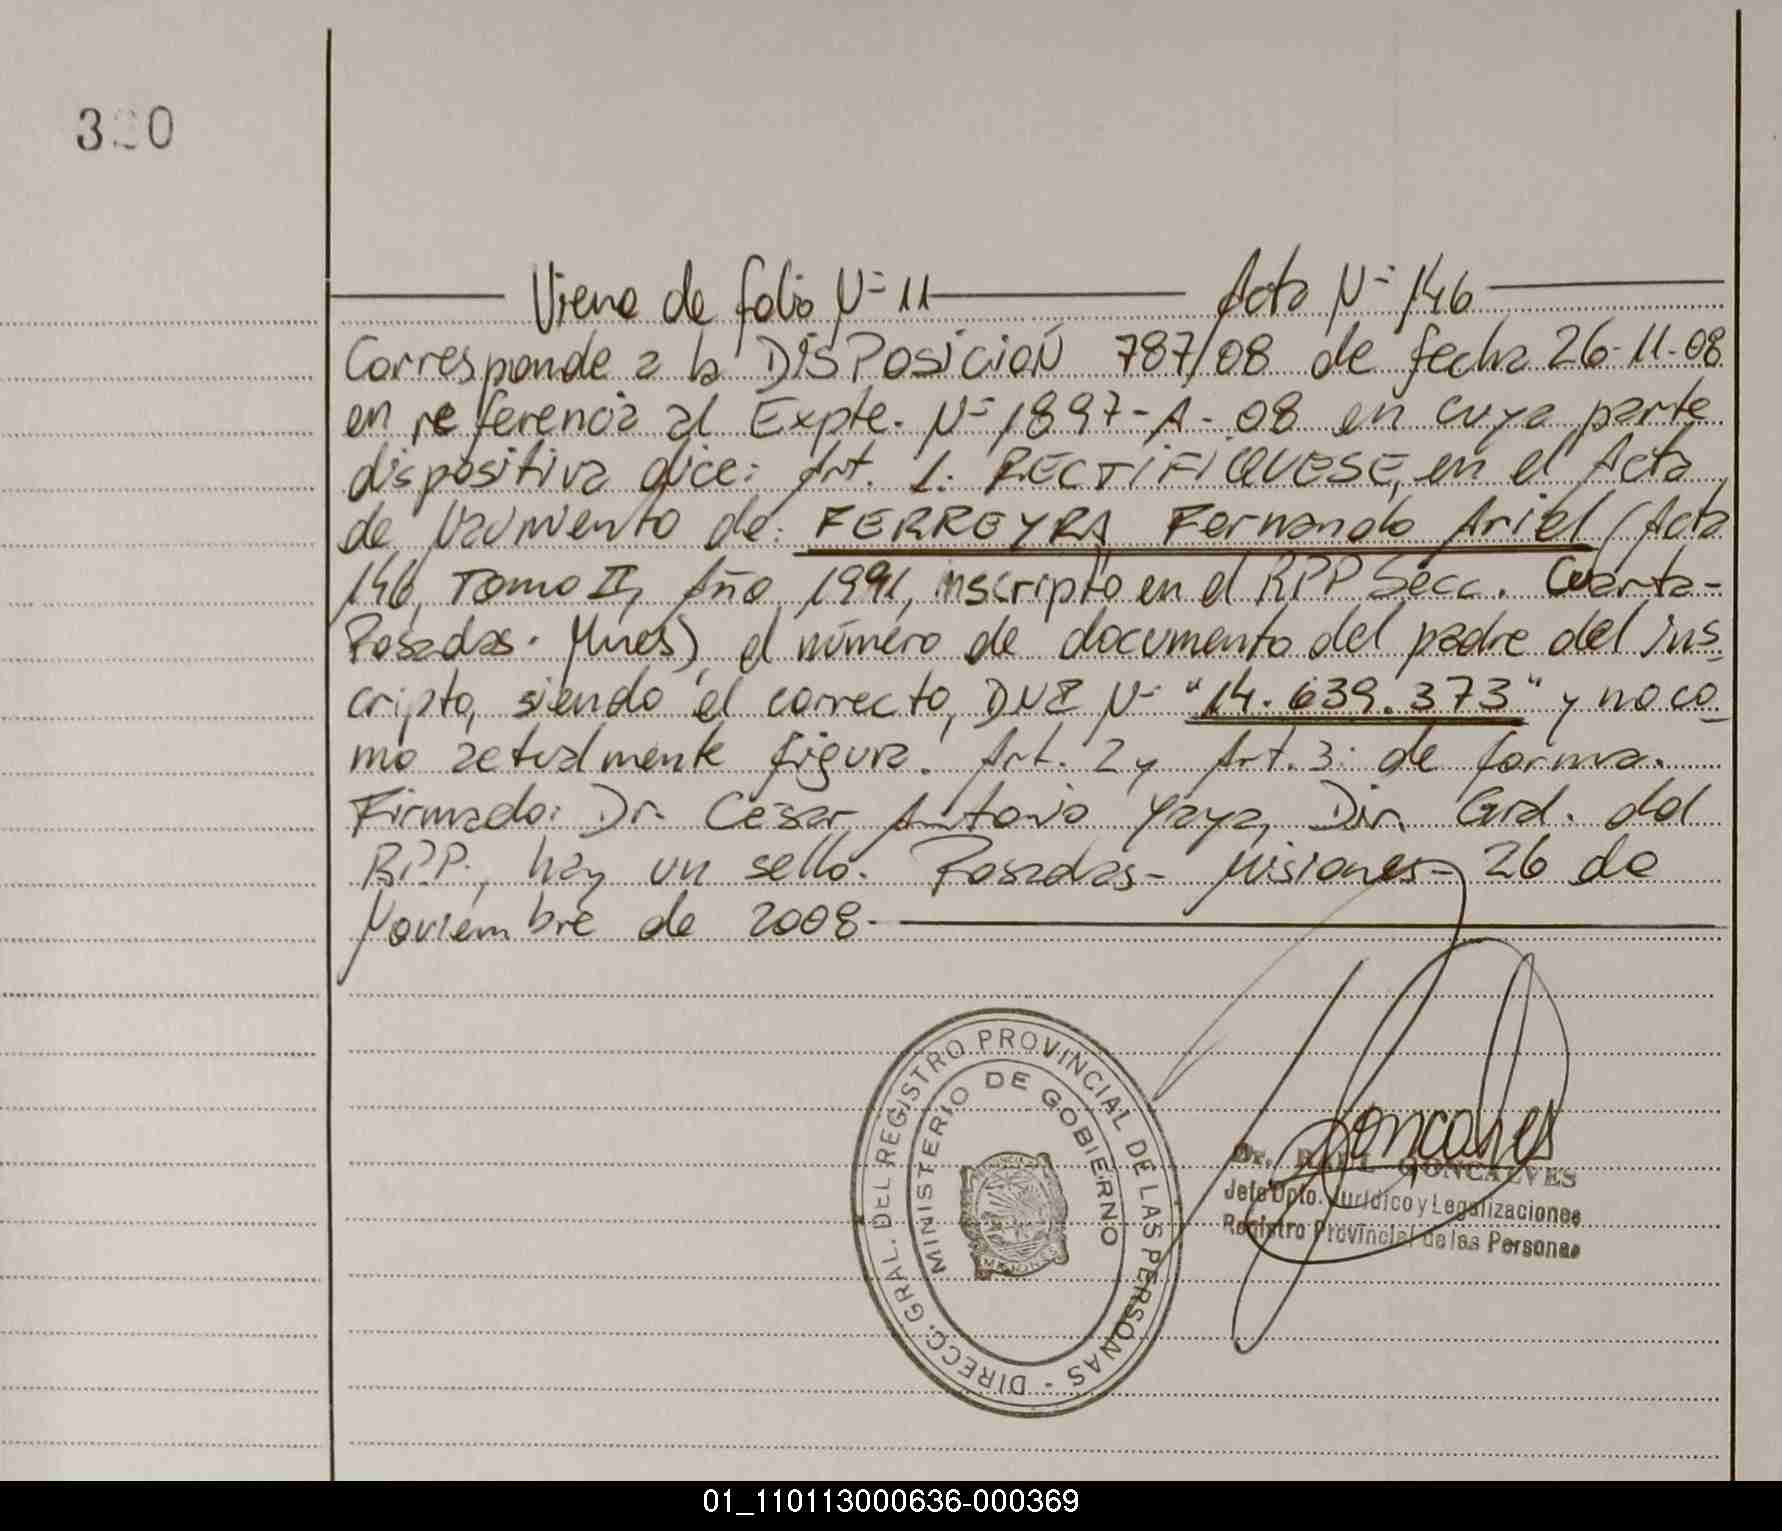 330
Viene de folio Nº 11 Acta Nº 146
Corresponde a la DISPOSICIÓN 787/08 de fecha 26-11-08
en referencia al Expte. Nº 1897-A-08 en cuya parte
dispositiva dice: Art. 1: RECTIFIQUESE, en el Acta
de Nacimiento de: FERREYRA Fernando Ariel (Acta
146, Tomo II, Año 1991, inscripto en el RPP Secc. Cuarta-
Posadas. Mnes), el número de documento del padre del ins-
cripto, siendo el correcto, DNI Nº "14.639.373" y no co-
mo actualmente figura. Art. 2 y Art. 3: de forma.
Firmado: Dr. César Antonio Yaya, Dir. Gral. del
RPP., hay un sello. Posadas- Misiones- 26 de
Noviembre de 2008.
DIRECC. GRAL. DEL REGISTRO PROVINCIAL DE LAS PERSONAS -
MINISTERIO DE GOBIERNO
MISIONES
Goncalves
Dr. RAUL GONCALVES
Jefe Dpto. Jurídico y Legalizaciones
Registro Provincial de las Personas
01_110113000636-000369